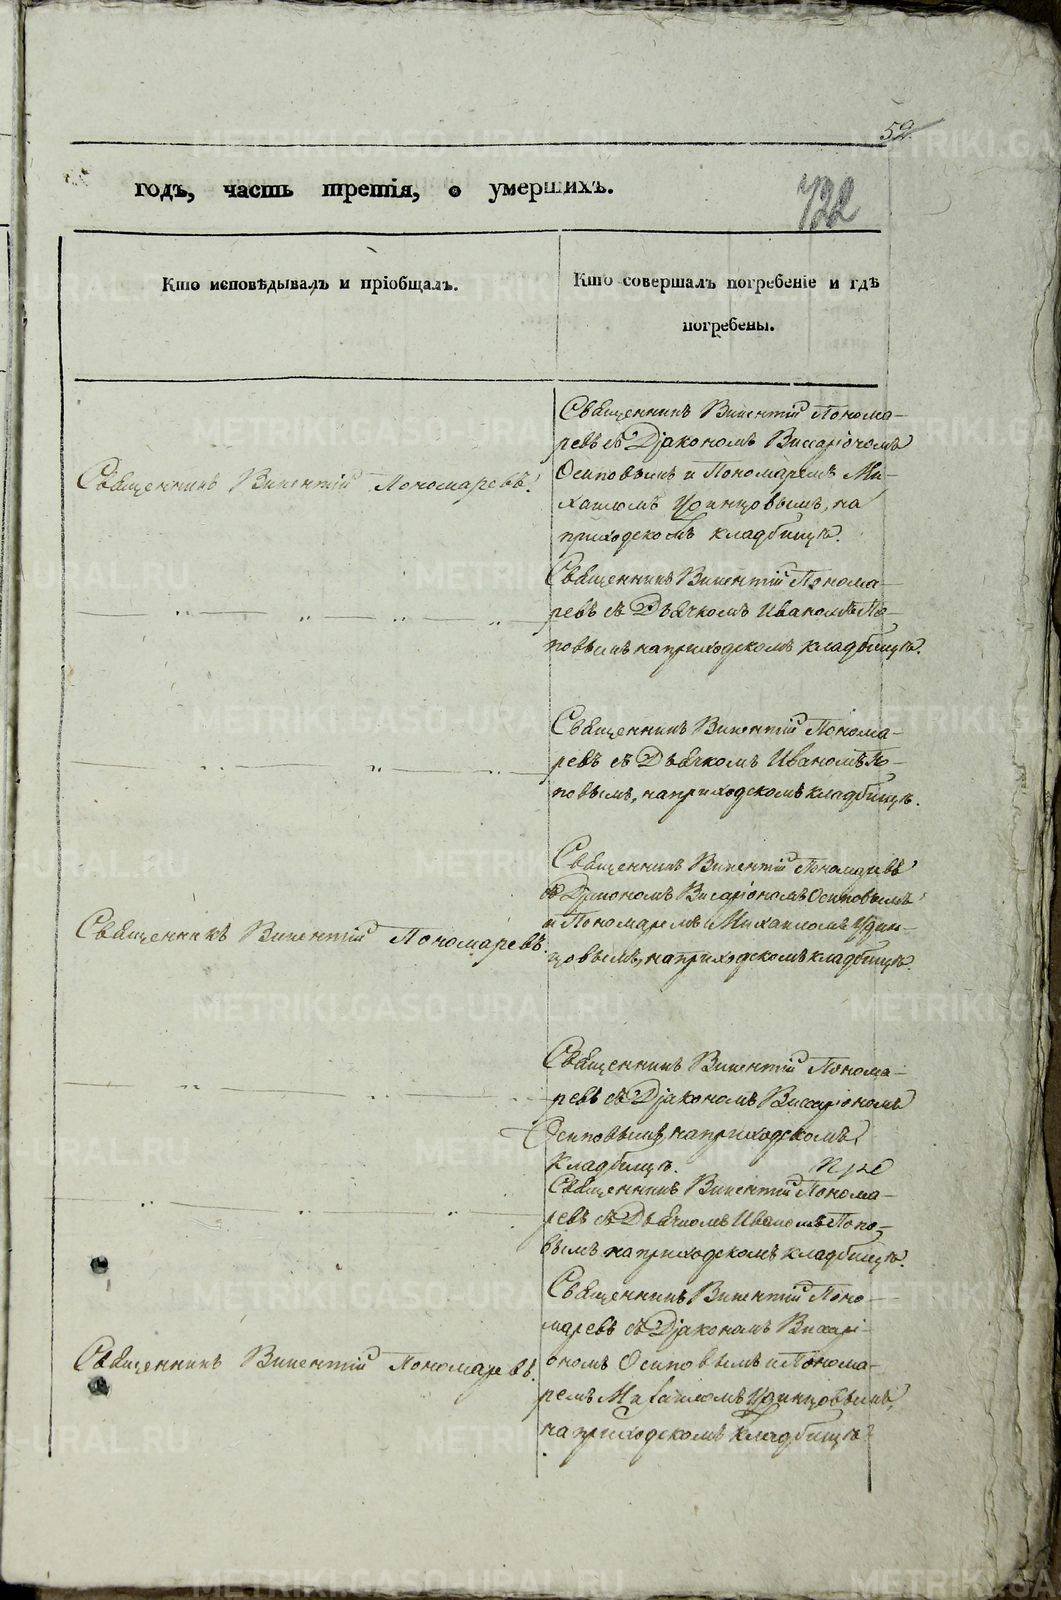 52
годъ, часть третія, о умершихъ.
722
Кто исповѣдывалъ и пріобщалъ.
Кто совершалъ погребеніе и гдѣ
погребены.
Священникъ Викентій Пономаревъ.
Священникъ Викентій Понома-
ревъ съ Діакономъ Висаріономъ
Осиповымъ и Пономаремъ Ми-
хаиломъ Удинцовымъ, на
приходскомъ кладбищѣ.
Священникъ Викентій Понома-
ревъ съ Дьячкомъ Иваномъ По-
повымъ на приходскомъ кладбищѣ.
Священникъ Викентій Понома-
ревъ съ Дьячкомъ Иваномъ По-
повымъ, на приходскомъ кладбищѣ.
Священникъ Викентій Пономаревъ
Священникъ Викентій Пономаревъ
съ Діакономъ Висаріономъ Осиповымъ
и Пономаремъ Михаиломъ Удин-
цовымъ, на приходскомъ кладбищѣ.
Священникъ Викентій Понома-
ревъ съ Діакономъ Виссаріономъ
Осиповымъ, на приходскомъ
кладбищѣ.
Священникъ Викентій Понома-
ревъ съ Дьячкомъ Иваномъ Попо-
вымъ на приходскомъ кладбищѣ.
Священникъ Викентій Пономаревъ.
Священникъ Викентій Поно-
маревъ съ Діакономъ Висарі-
ономъ Осиповымъ и Понома-
ремъ Михаиломъ Удинцовымъ,
на приходскомъ кладбищѣ
METRIKI.GASO-URAL.RU